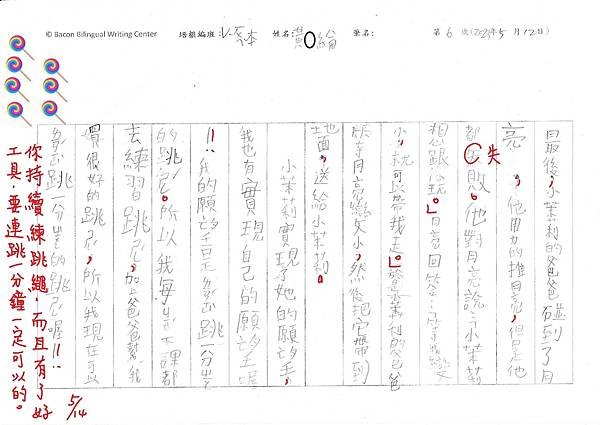 © Bacon Bilingual Writing Center 培訓編班： 姓名：黃〇綸 筆名： 第6次(2021年5月12日)
最後，小茉莉的爸爸碰到了月
亮，他用力的推月亮，但是他
都失敗。他對月亮說：小茉莉
想跟你玩。」月亮回答：等我變
小，就可以帶我走。」於是茉莉的爸爸
等月亮變小，然後把它帶到
地面，送給小茉莉。
小茉莉實現了她的願望，
我也有實現自己的願望喔
！！我的願望是能跳一分半
的跳繩。所以我每天下課都
去練習跳繩，加上爸爸幫我
買很好的跳繩，所以我現在可以
能跳一分半的跳繩喔！！
失
你持續練跳繩，而且有了好
工具，要連跳一分鐘一定可以的。
5/14